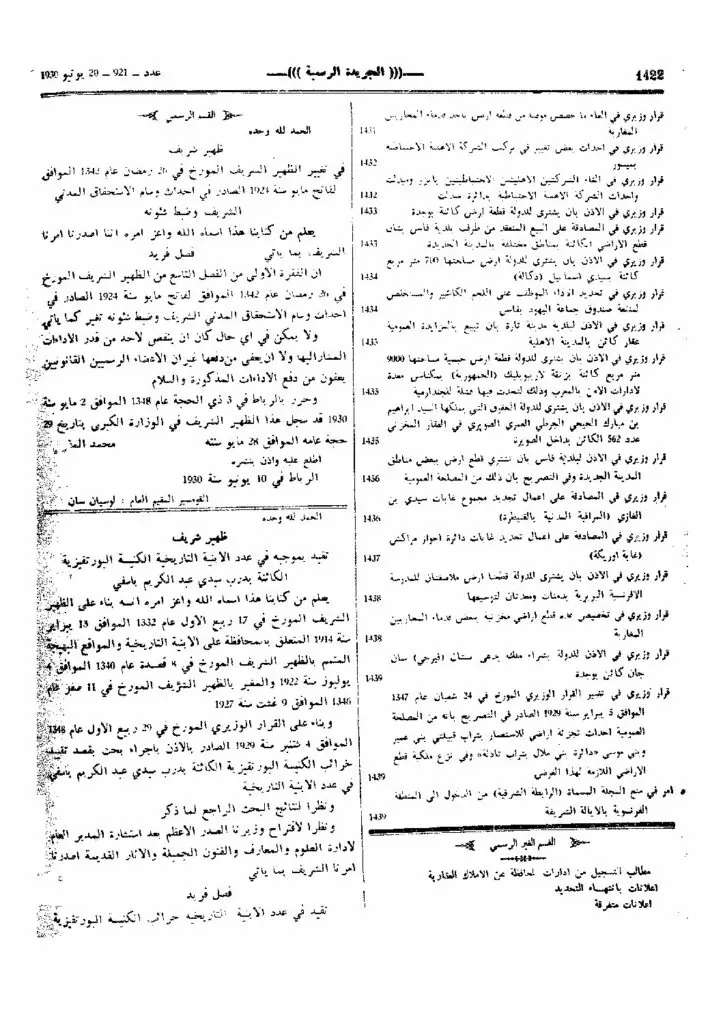 1422
الجريدة الرسمية
عدد - 921 - 20 يونيو 1930
قرار وزيري في الغاء ما خصص موقتا من قطعة ارض باحد قدماء المحاربين
المغاربة 1431
قرار وزيري في احداث بعض تغيير في تركيب الشركة الاهلية الاحتياطية
بميسور 1432
قرار وزيري في الغاء الشركتين الاهليتين الاحتياطيتين وميدلت
واحداث الشركة الاهلية الاحتياطية بدائرة ميدلت 1432
قرار وزيري في الاذن بان يشترى للدولة قطعة ارض كائنة بوجدة 1433
قرار وزيري في المصادقة على البيع المنعقد من طرف بلدية فاس بشان
قطع الاراضي الكائنة بمناطق مختلفة بالمدينة الجديدة 1433
قرار وزيري في الاذن بان يشترى للدولة ارض مساحتها 700 متر مربع
كائنة بسيدي اسماعيل (دكالة) 1434
قرار وزيري في تحديد الاداء الموظف على اللحم الكاشير والمستخلص
لمنفعة صندوق جماعة اليهود بفاس 1434
قرار وزيري في الاذن لبلدية مدينة تازة بان تبيع بالمزايدة العمومية
عقار كائن بالمدينة الاهلية 1435
قرار وزيري في الاذن بان يشترى للدولة قطعة ارض حبسية مساحتها 9000
متر مربع كائنة بزنقة لاريبوبليك (الجمهورية) بمكناس معدة
لادارات الامن بالمغرب وذلك لتحدث فيها قشلة للجندارمية 1435
قرار وزيري في الاذن بان يشترى للدولة الحقوق التي يملكها السيد ابراهيم
بن مبارك الحيحي الجرطي العمري الصويري في العقار المخزني
عدد 562 الكائن بداخل الصويرة 1435
قرار وزيري في الاذن لبلدية فاس بان تشتري قطع ارض ببعض مناطق
المدينة الجديدة وفي التصريح بان ذلك من المصلحة العمومية 1436
قرار وزيري في المصادقة على اعمال تحديد مجموع غابات سيدي بن
الغازي (المراقبة المدنية بالقنيطرة) 1436
قرار وزيري في المصادقة على اعمال تحديد غابات دائرة احواز مراكش
(غابة اوريكة) 1437
قرار وزيري في الاذن بان يشترى للدولة قطعتا ارض ملاصقتان للمدرسة
الافرنسية البربرية بدمنات ومعدتان لتوسيعها 1438
قرار وزيري في تخصيص عدة قطع اراضي مخزنية ببعض قدماء المحاربين
المغاربة 1438
قرار وزيري في الاذن للدولة بشراء ملك يدعى ستان (فيرجي) سان
جان كائن بوجدة 1439
قرار وزيري في تغيير القرار الوزيري المورخ في 24 شعبان عام 1347
الموافق 5 يبراير سنة 1929 الصادر في التصريح بانه من المصلحة
العمومية احداث تجزئة اراضي للاستعمار بتراب قبيلتي بني عمير
وبني موسى «دائرة بني ملال بتراب تادلة» وفي نزع ملكية قطع
الاراضي اللازمة لهذا الغرض 1439
امر في منع المجلة المسماة (الرابطة الشرقية) من الدخول الى المنطقة
الفرنسوية بالايالة الشريفة 1439
القسم الغير الرسمي
مطالب التسجيل من ادارات المحافظة عن الاملاك العقارية
اعلانات بانتهاء التحديد
اعلانات متفرقة
القسم الرسمي
الحمد لله وحده
ظهير شريف
في تغيير الظهير الشريف المورخ في 26 رمضان عام 1342 الموافق
لفاتح مايو سنة 1924 الصادر في احداث وسام الاستحقاق المدني
الشريف وضبط شئونه
يعلم من كتابنا هذا اسماه الله واعز امره اننا اصدرنا امرنا
الشريف بما ياتي
فصل فريد
ان الفقرة الاولى من الفصل التاسع من الظهير الشريف المورخ
في 26 رمضان عام 1342 الموافق لفاتح مايو سنة 1924 الصادر في
احداث وسام الاستحقاق المدني الشريف وضبط شئونه تغير كما ياتي
ولا يمكن في اي حال كان ان ينقص لاحد من قدر الاداءات
المشار اليها ولا ان يعفى من دفعها غير ان الاعضاء الرسميين القانونيين
يعفون من دفع الاداءات المذكورة والسلام
وحرر بالرباط في 3 ذي الحجة عام 1348 الموافق 2 مايو سنة
1930 قد سجل هذا الظهير الشريف في الوزارة الكبرى بتاريخ 29
حجة عامه الموافق 28 مايو سنته محمد
اطلع عليه واذن بنشره
الرباط في 10 يونيو سنة 1930
القوميسير المقيم العام : لوسيان سان
الحمد لله وحده
ظهير شريف
تقيد بموجبه في عدد الابنية التاريخية الكنيسة البورتقيزية
الكائنة بدرب سيدي عبد الكريم باسفي
يعلم من كتابنا هذا اسماه الله واعز امره انه بناء على الظهير
الشريف المورخ في 17 ربيع الاول عام 1332 الموافق 13 يبراير
سنة 1914 المتعلق بالمحافظة على الابنية التاريخية والمواقع البهيجة
المتمم بالظهير الشريف المورخ في 8 قعدة عام 1340 الموافق 4
يوليوز سنة 1922 والمغير بالظهير الشريف المورخ في 11 صفر عام
1346 الموافق 9 غشت سنة 1927
وبناء على القرار الوزيري المورخ في 29 ربيع الاول عام 1348
الموافق 4 شتنبر سنة 1929 الصادر بالاذن باجراء بحث بقصد تقييد
خرائب الكنيسة البورتقيزية الكائنة بدرب سيدي عبد الكريم باسفي
في عدد الابنية التاريخية
ونظرا لنتائج البحث الراجع لما ذكر
ونظرا لاقتراح وزيرنا الصدر الاعظم بعد استشارة المدير العام
لادارة العلوم والمعارف والفنون الجميلة والاثار القديمة اصدرنا
امرنا الشريف بما ياتي
فصل فريد
تقيد في عدد الابنية التاريخية خرائب الكنيسة البورتقيزية